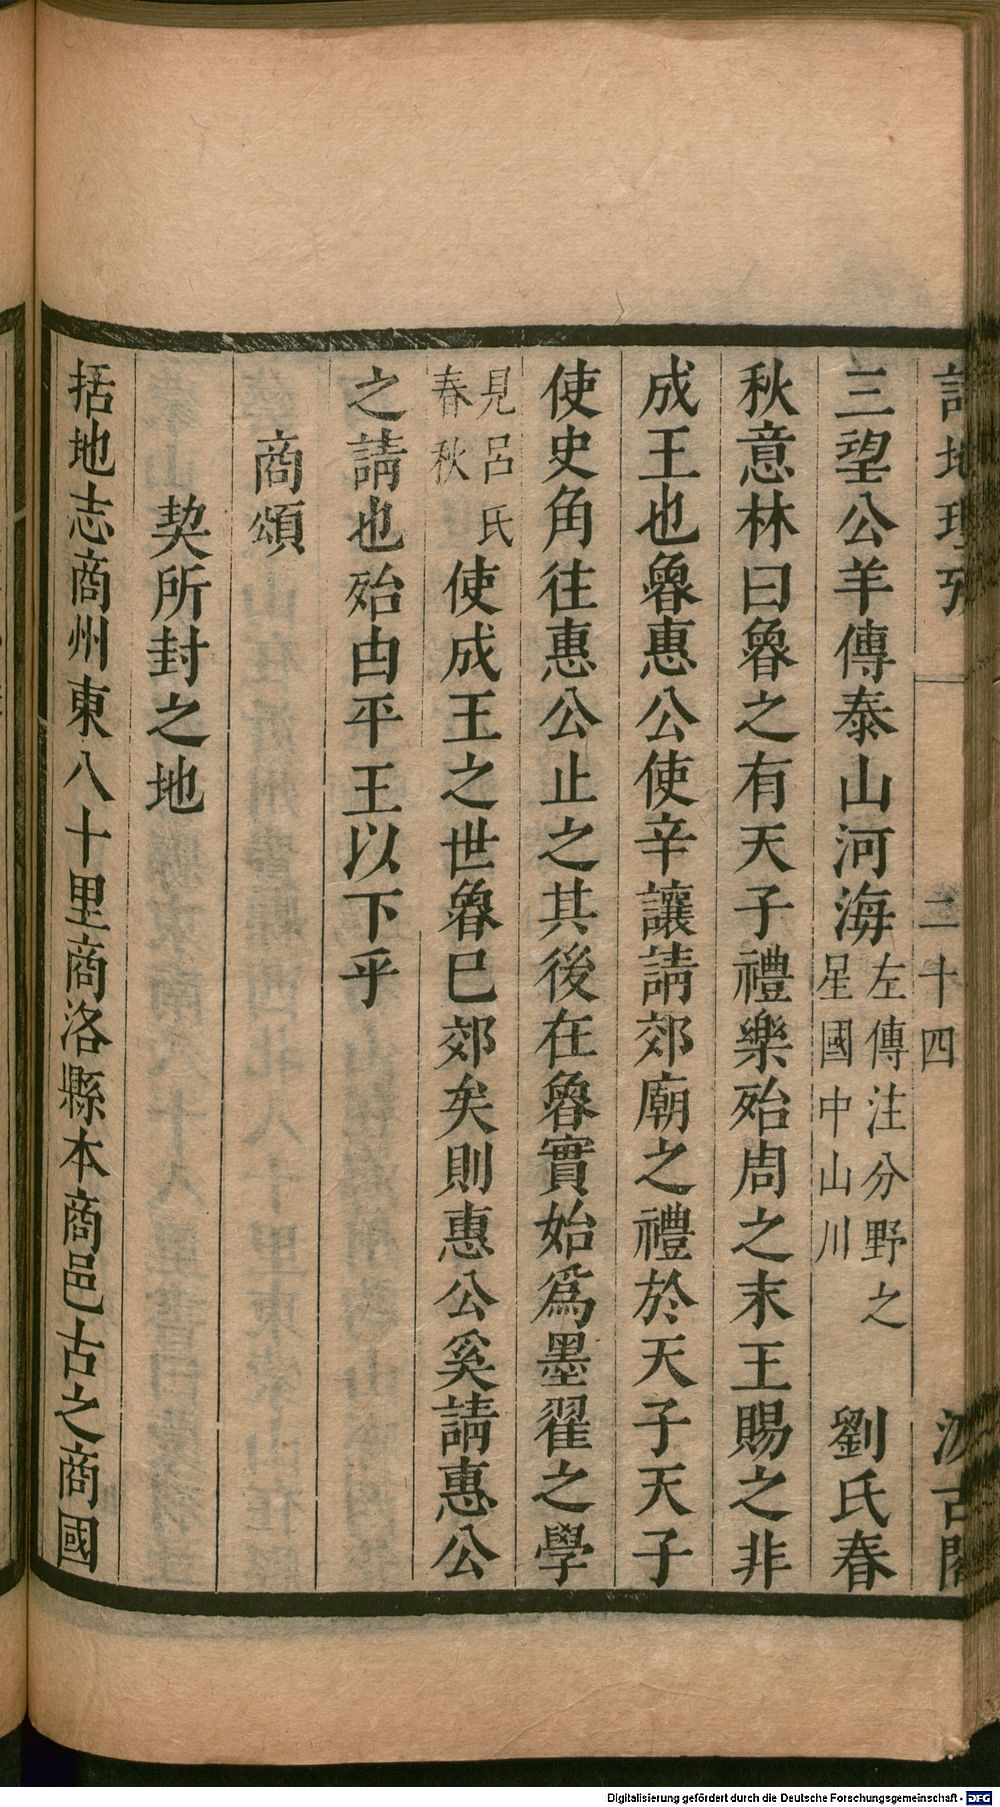 詩地理攷
二十四
汲古閣
三望公羊傳泰山河海左傳注分野之星國中山川劉氏春
秋意林曰魯之有天子禮樂殆周之末王賜之非
成王也魯惠公使宰讓請郊廟之禮於天子天子
使史角往惠公止之其後在魯實始爲墨翟之學
見呂氏春秋使成王之世魯巳郊矣則惠公奚請惠公
之請也殆由平王以下乎
商頌
契所封之地
括地志商州東八十里商洛縣本商邑古之商國
Digitalisierung gefördert durch die Deutsche Forschungsgemeinschaft - DFG